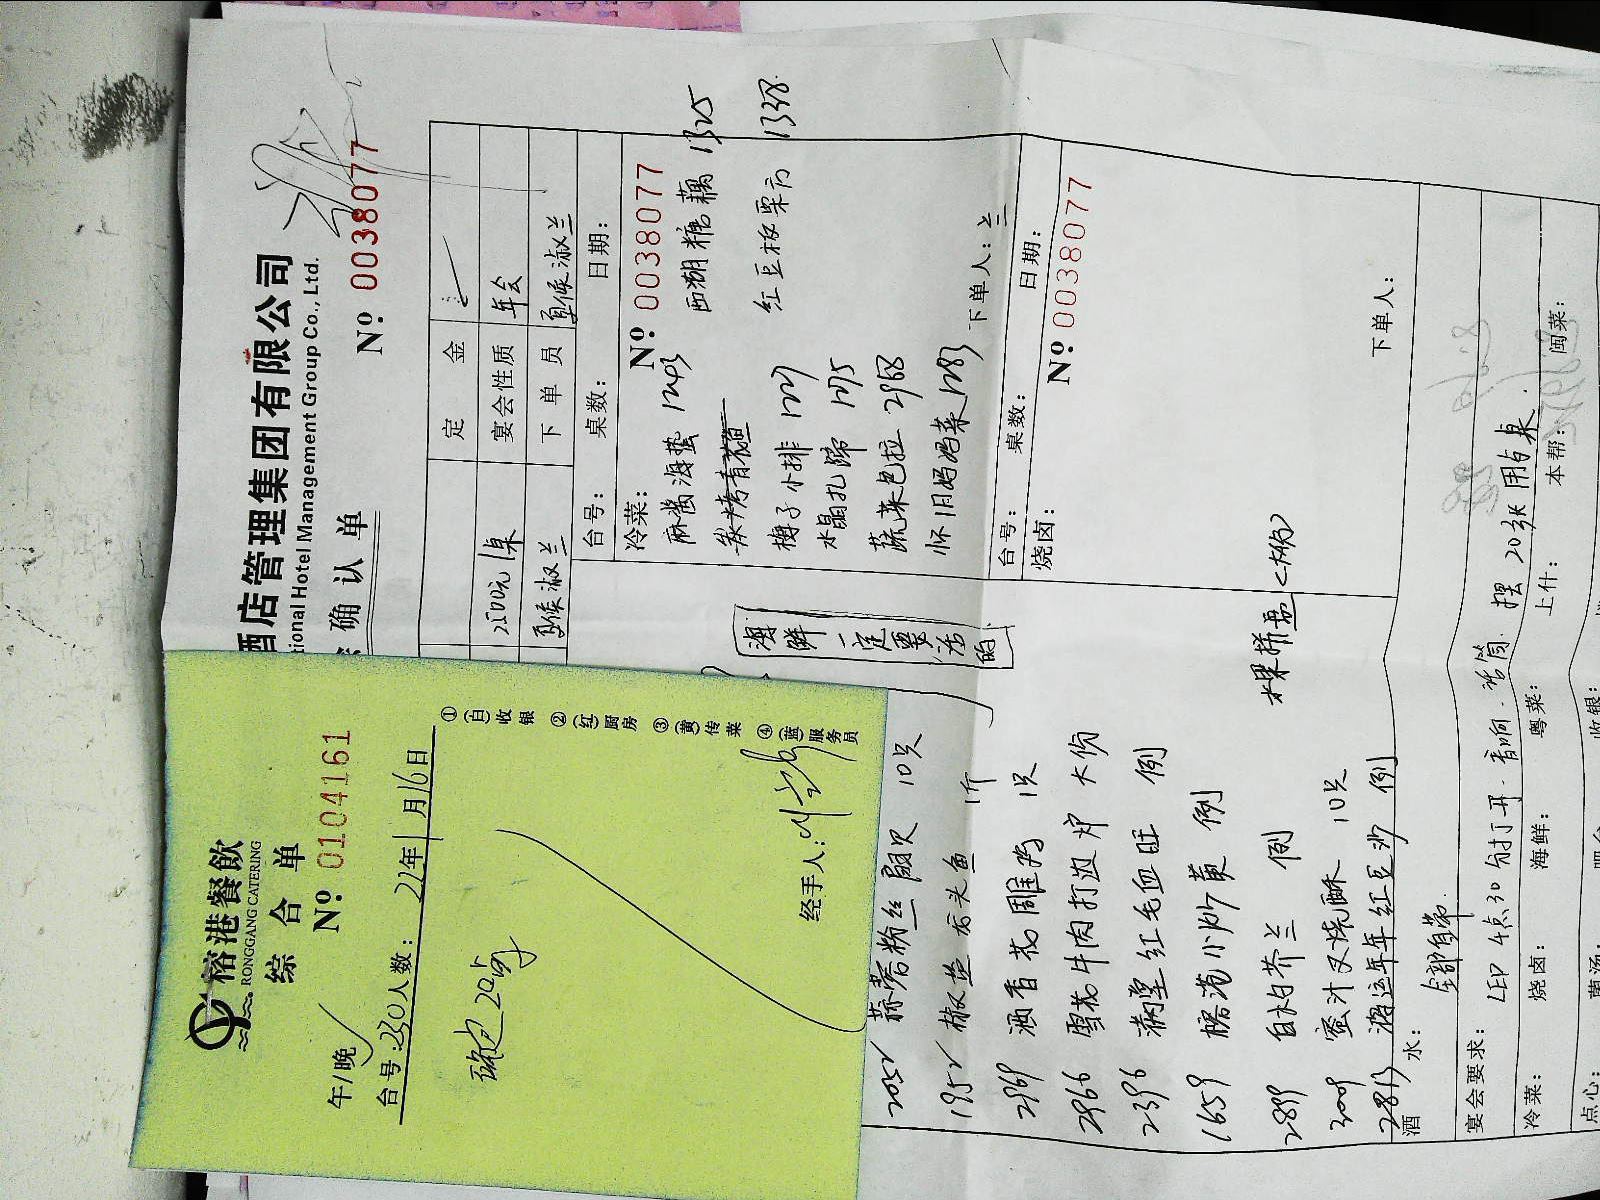 酒店管理集团有限公司
tional Hotel Management Group Co., Ltd.
确认单
Nº 0038077
定金
2500元/桌 宴会性质 年会
夏候淑兰 下单员 夏候淑兰
台号： 桌数： 日期：
冷菜： Nº 0038077
麻酱海蜇 1243 西湖糖藕 1325
梅子小排
红豆板栗方 1338
水晶扎蹄
蔬菜色拉 2968
怀旧妈妈菜 1283
下单人：兰
海鲜一定要活的
台号： 桌数： 日期：
烧卤： Nº 0038077
下单人：
榕港餐飲
RONGGANG CATERING
综合单
Nº 0104161
午/晚
台号：230 人数： 21年1月16日
经手人：
①（白）收银
②（红）厨房
③（黄）传菜
④（蓝）服务员
2052 蒜蓉粉丝扇贝 10只
1952 椒盐龙头鱼 1斤
2969 酒香花雕鸡 1只
2966 雪花牛肉打边炉 大份
2396 满堂红毛血旺 例
1659 榕港小炒黄 例
2899 白灼芥兰 例
3009 蜜汁叉烧酥 10只
2813 鸿运年年红豆沙 例
水果拼盘<大份>
酒水： 全部自带
宴会要求： LED 4点30分打开.音响.话筒. 摆20张用台桌.
冷菜： 烧卤： 海鲜： 粤菜： 上什： 本帮： 闽菜：
点心： 收银：